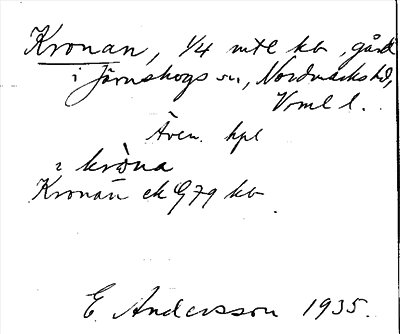 Kronan, 1/4 mtl kb, gård
i Järnskogs sn, Nordmarks hd,
Vrml l.
Även. hpl
i kròna
Kronan ek G79 kb
E. Andersson 1935.